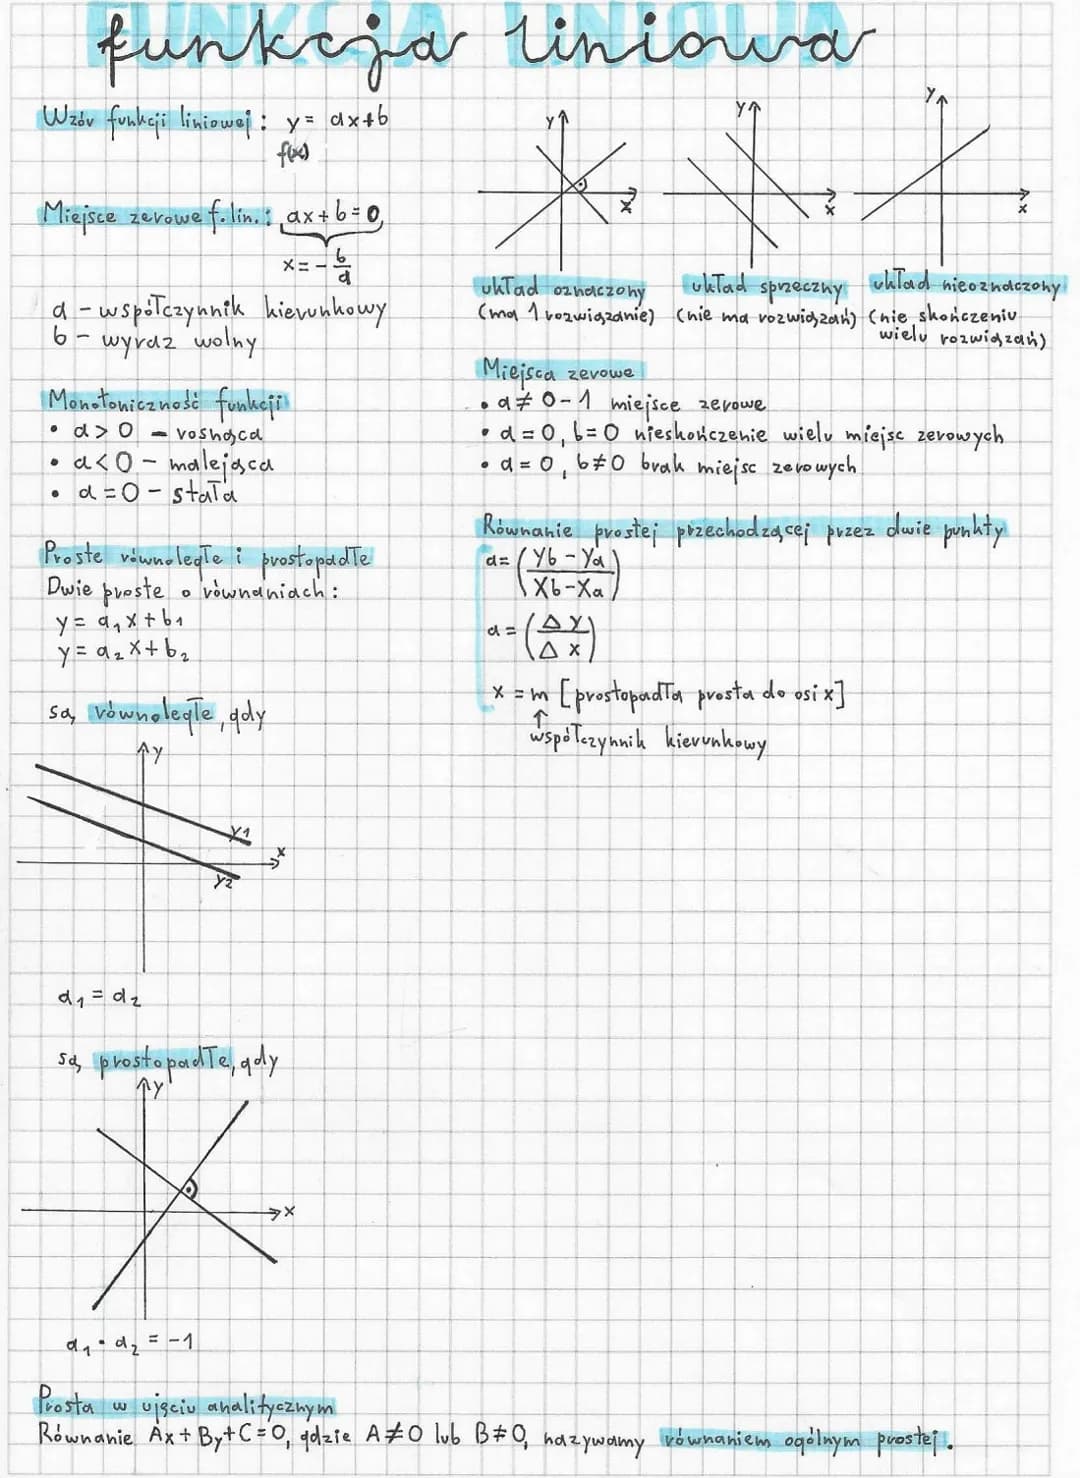 funkcja liniowa
Wzór funkcji liniowej: y = ax+b
f(x)
Miejsce zerowe f. lin.: ax+b=0
x = - b/a
a - współczynnik kierunkowy
b - wyraz wolny
Monotoniczność funkcji
• a > 0 - rosnąca
• a < 0 - malejąca
• a = 0 - stała
Proste równoległe i prostopadłe
Dwie proste o równaniach:
y = a₁x + b₁
y = a₂x + b₂
są równoległe, gdy
y
y1
x
y2
a₁ = a₂
są prostopadłe, gdy
y
x
a₁ • a₂ = -1
y
x
y
x
y
x
układ oznaczony
(ma 1 rozwiązanie)
układ sprzeczny
(nie ma rozwiązań)
układ nieoznaczony
(nie skończeniu
wielu rozwiązań)
Miejsca zerowe
• a ≠ 0 - 1 miejsce zerowe
• a = 0, b = 0 nieskończenie wielu miejsc zerowych
• a = 0, b ≠ 0 brak miejsc zerowych
Równanie prostej przechodzącej przez dwie punkty
a = (Yb - Ya / Xb - Xa)
a = (Δ y / Δ x)
x = m [prostopadła prosta do osi x]
↑
współczynnik kierunkowy
Prosta w ujęciu analitycznym
Równanie Ax + By + C = 0, gdzie A ≠ 0 lub B ≠ 0, nazywamy równaniem ogólnym prostej.